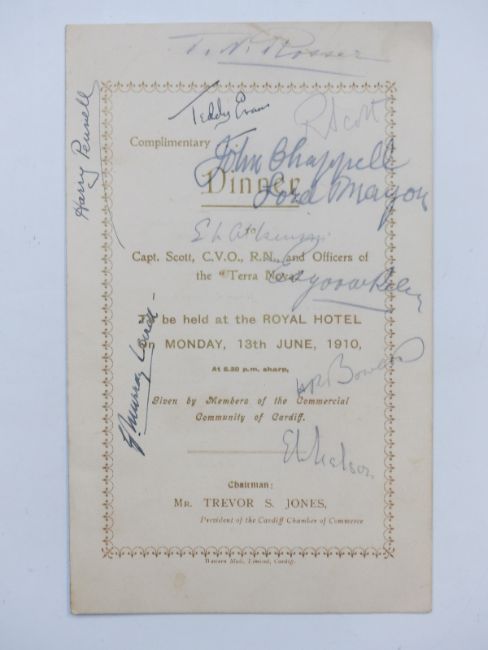 T. N. Rosser
Harry Pennell
Teddy Evans
R Scott
Complimentary
John Chappell
Lord Mayor
Dinner
to
E L Atkinson
Capt. Scott, C.V.O., R.N., and Officers of
the "Terra Nova"
To be held at the ROYAL HOTEL
On MONDAY, 13th JUNE, 1910,
At 6.30 p.m. sharp,
HR Bowers
G. Murray Levick
Given by Members of the Commercial
Community of Cardiff.
EWNelson
Chairman:
MR. TREVOR S. JONES,
President of the Cardiff Chamber of Commerce
Limited, Cardiff.